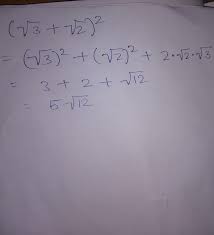 (√3 + √2)²
= (√3)² + (√2)² + 2·√2·√3
= 3 + 2 + √12
= 5√12